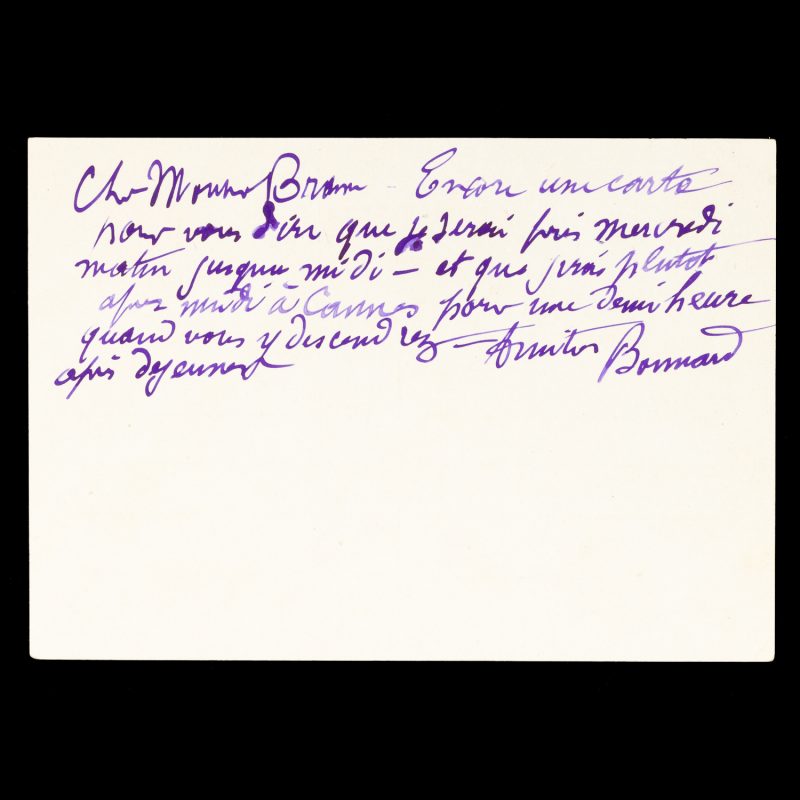 Cher Monsieur Braun – Encore une carte
pour vous dire que je serai pris mercredi
matin jusqu'a midi – et que j'irai plutot
apres midi à Cannes pour une demi heure
quand vous y descendrez – Amities
apres dejeuner Bonnard